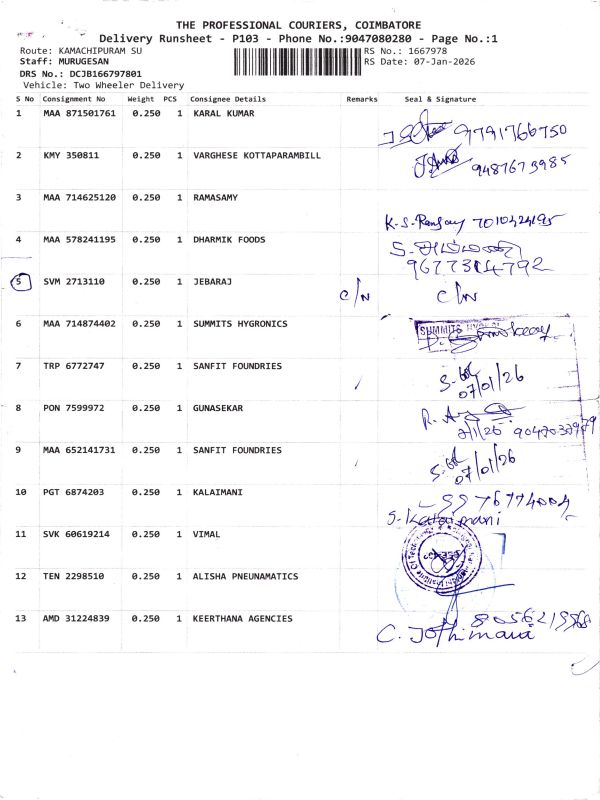 THE PROFESSIONAL COURIERS, COIMBATORE
Delivery Runsheet - P103 - Phone No.:9047080280 - Page No.:1
Route: KAMACHIPURAM SU RS No.: 1667978
Staff: MURUGESAN RS Date: 07-Jan-2026
DRS No.: DCJB166797801
Vehicle: Two Wheeler Delivery
S No Consignment No Weight PCS Consignee Details Remarks Seal & Signature
1 MAA 871501761 0.250 1 KARAL KUMAR 9791766750
2 KMY 350811 0.250 1 VARGHESE KOTTAPARAMBILL 9487673985
3 MAA 714625120 0.250 1 RAMASAMY
K.S. 7010424195
4 MAA 578241195 0.250 1 DHARMIK FOODS S.
9677314792
5 SVM 2713110 0.250 1 JEBARAJ C/N C/N
6 MAA 714874402 0.250 1 SUMMITS HYGRONICS SUMMITS
7 TRP 6772747 0.250 1 SANFIT FOUNDRIES
07/01/26
8 PON 7599972 0.250 1 GUNASEKAR
9 MAA 652141731 0.250 1 SANFIT FOUNDRIES
07/01/26
10 PGT 6874203 0.250 1 KALAIMANI 9976774004
S. Kalaimani
11 SVK 60619214 0.250 1 VIMAL
12 TEN 2298510 0.250 1 ALISHA PNEUNAMATICS
13 AMD 31224839 0.250 1 KEERTHANA AGENCIES
C. Jothimani